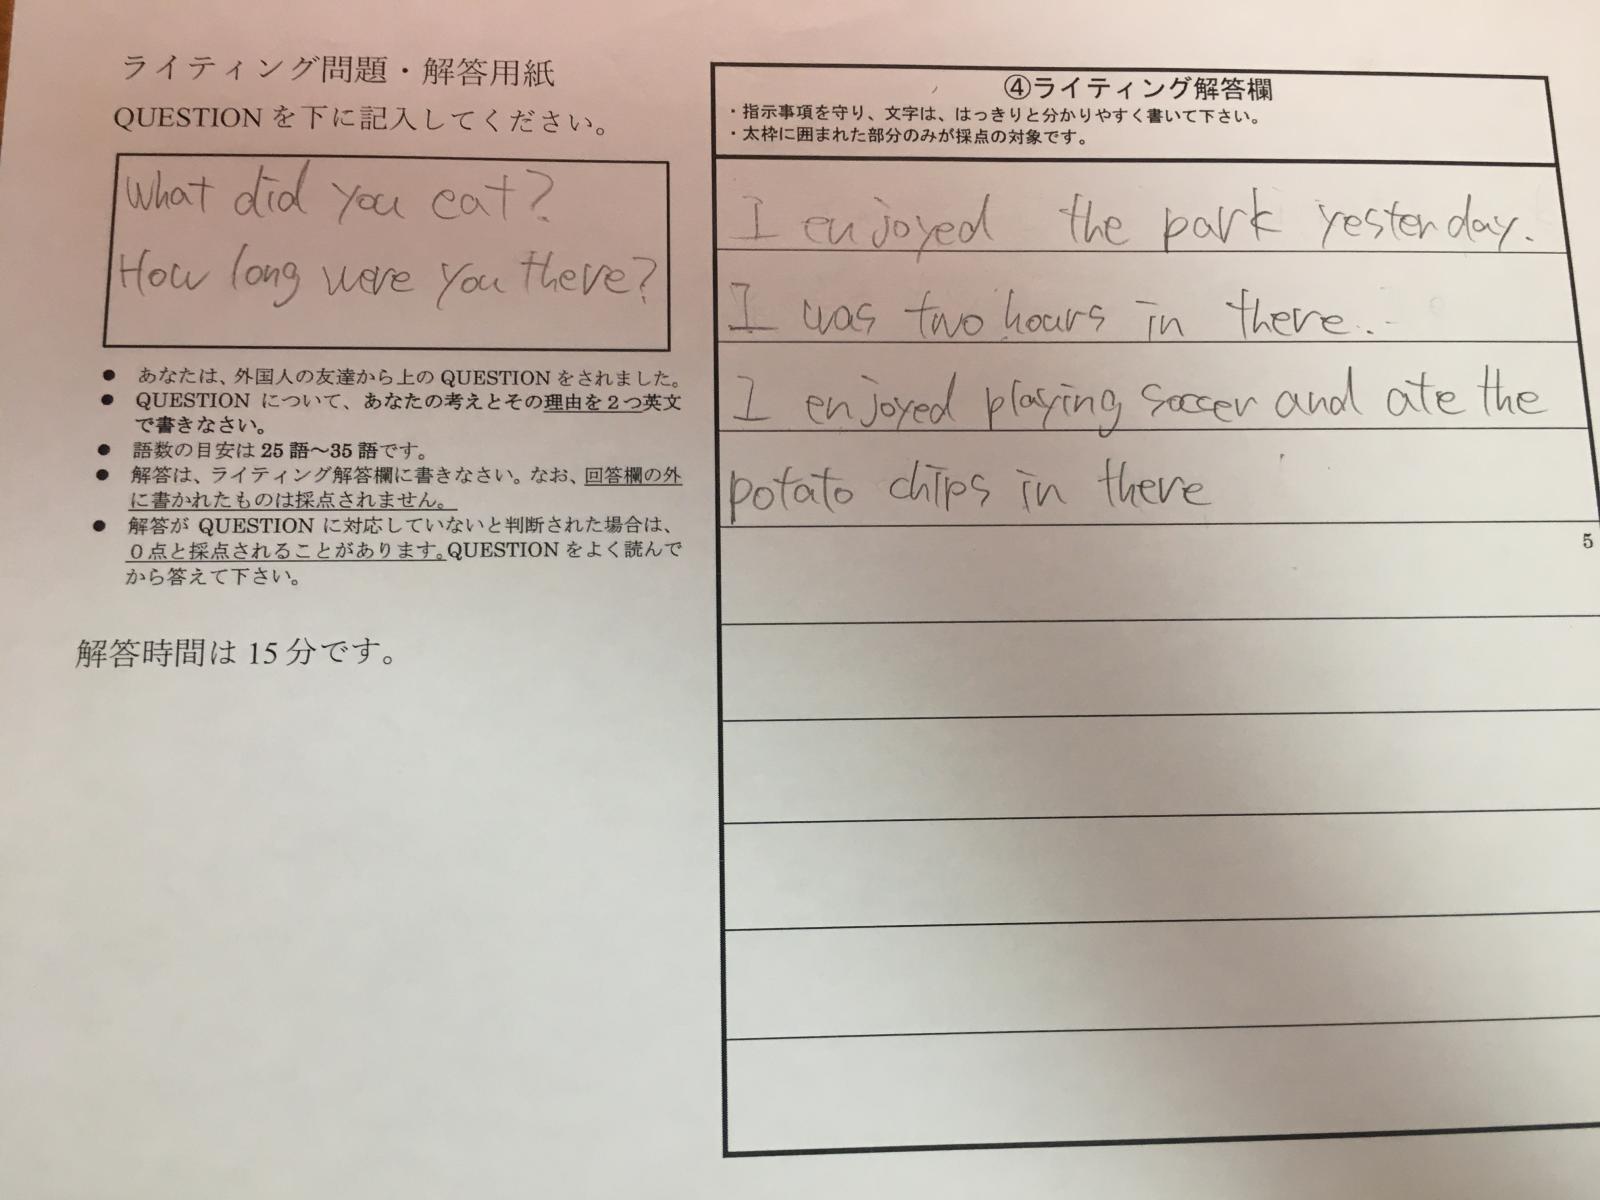 ライティング問題・解答用紙
QUESTION を下に記入してください。
What did you eat?
How long were you there?
● あなたは、外国人の友達から上の QUESTION をされました。
● QUESTION について、あなたの考えとその理由を2つ英文
で書きなさい。
● 語数の目安は 25 語～35 語です。
● 解答は、ライティング解答欄に書きなさい。なお、回答欄の外
に書かれたものは採点されません。
● 解答が QUESTION に対応していないと判断された場合は、
0点と採点されることがあります。QUESTION をよく読んで
から答えて下さい。
解答時間は 15 分です。
④ライティング解答欄
・指示事項を守り、文字は、はっきりと分かりやすく書いて下さい。
・太枠に囲まれた部分のみが採点の対象です。
I enjoyed the park yesterday.
I was two hours in there.
I enjoyed playing soccer and ate the
potato chips in there
5